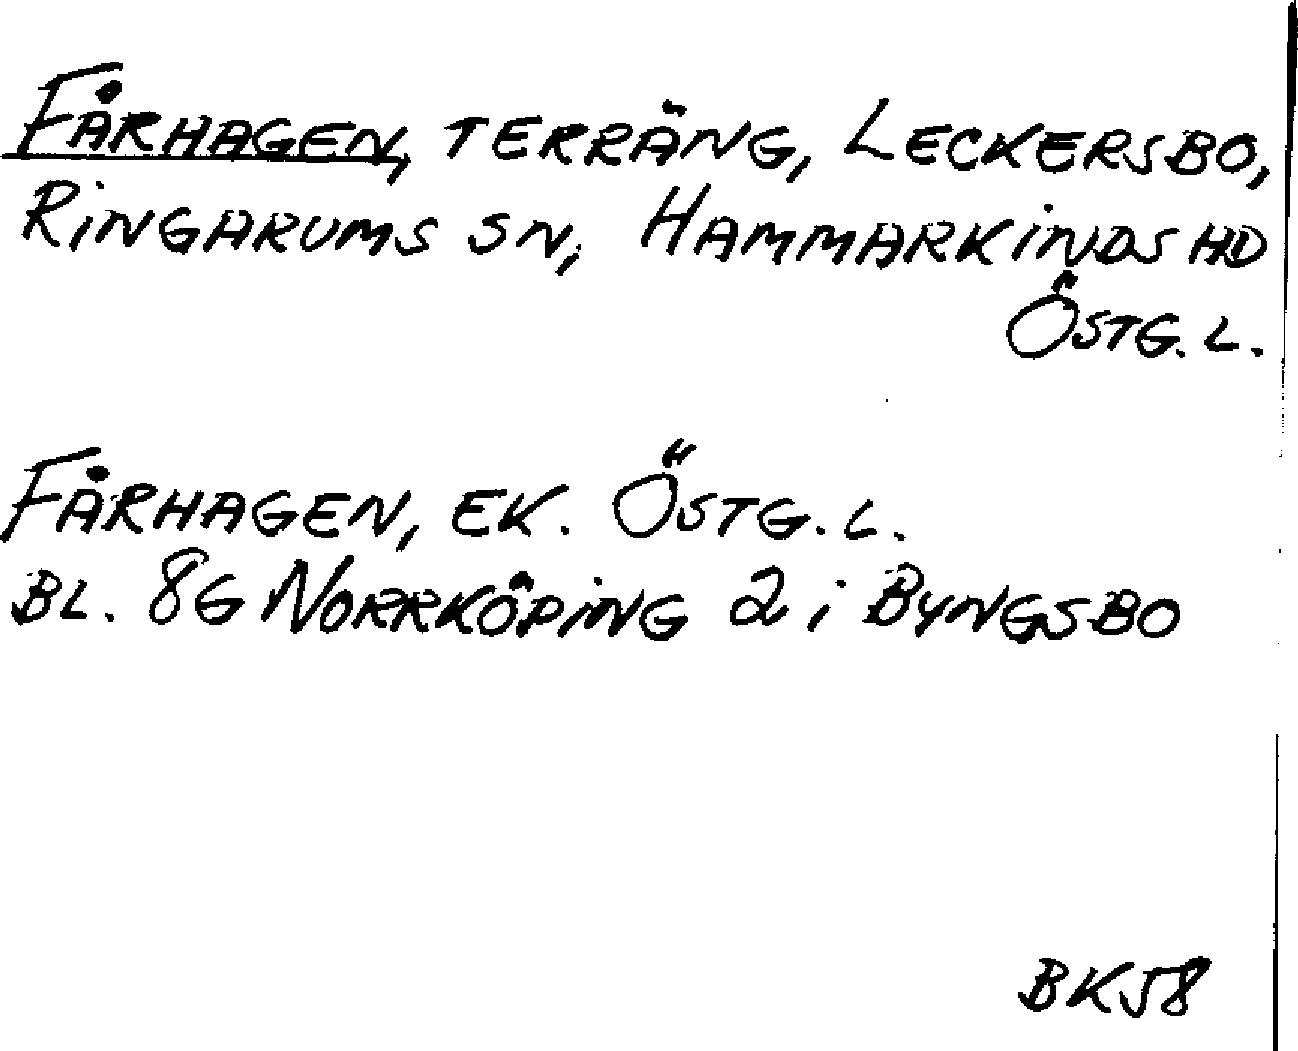 FÅRHAGEN, TERRÄNG, LECKERSBO,
RINGARUMS SN, HAMMARKINDS HD
ÖSTG. L.
FÅRHAGEN, EK. ÖSTG. L.
BL. 8G NORRKÖPING 2 i BYNGSBO
BK58